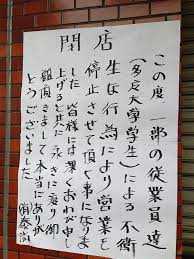 閉店
この度 一部の従業員達
(多摩大学学生)による不衛
生な行為により営業を
停止させて頂く事になりま
した 皆様には深くおわび申し
上げると共に永きに渡り御
観頂きまして本当にありが
とうございました